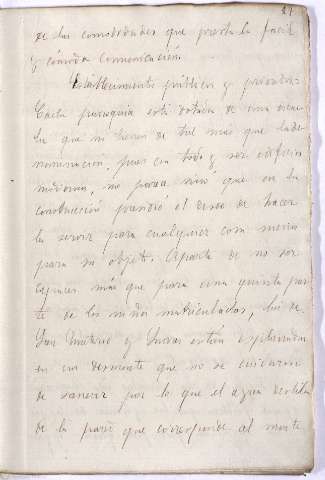 21
de las comodidades que presta la facil
y cómoda comunicación.
Establecimientos públicos y privados:
Cada parroquia está dotada de una escue
la que ni tienen de tal más que la de
nominación, pues con todo y ser edificios
modernos, no parece sino que en su
construcción presidió el deseo de hacer
la servir para cualquier cosa menos
para su objeto. Aparte de no ser
capaces más que para una quinta par
te de los niños matriculados, las de
San y están
en un desmonte que no se cuidaron
de sanear por lo que el agua destila
de la pared que corresponde al monte